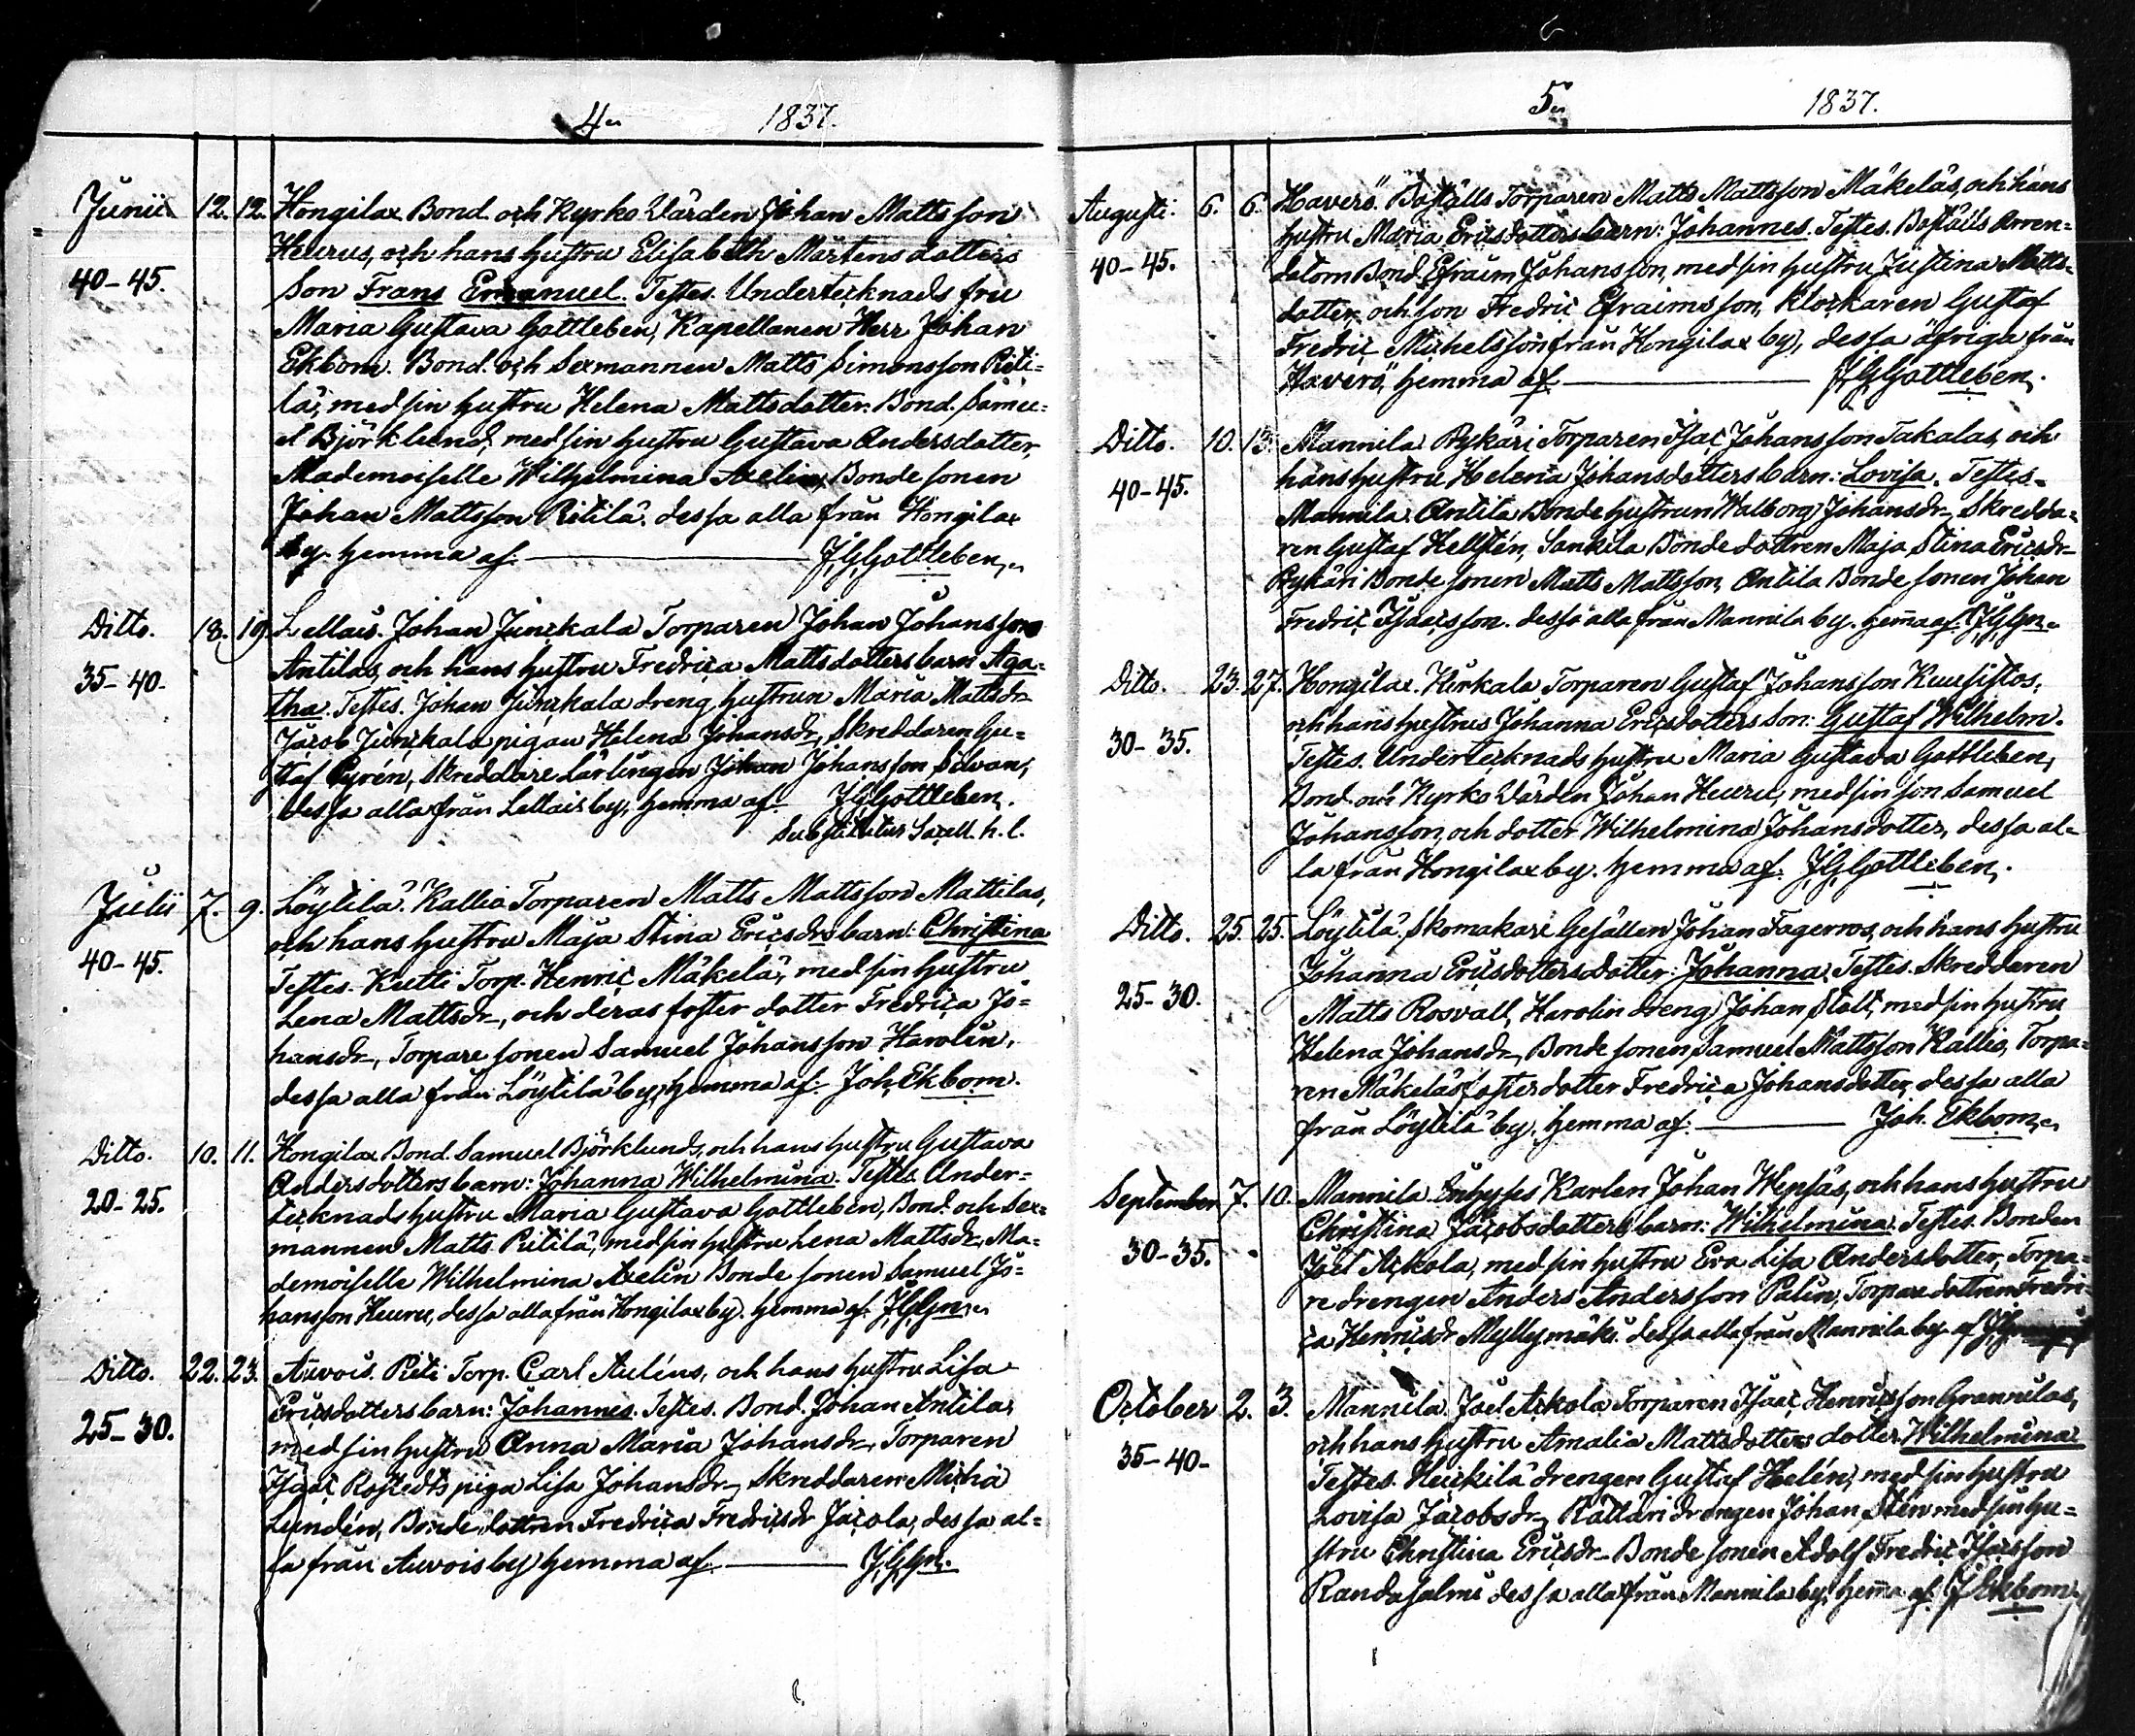 4. 1837.
Junii 12. 12. Hongilax Bond. och Kyrko Värden Johan Mattsson
Heurus, och hans hustru Elisabeth Mårtensdotters
40-45. Son Frans Emanuel. Testes. Undertecknads fru
Maria Gustava Gottleben, Kapellanen Herr Johan
Ekbom. Bond. och Sexmannen Matts Simonsson Piti=
lä, med sin hustru Helena Mattsdotter. Bond. Samu=
el Björklund, med sin hustru Gustava Andersdotter,
Mademoiselle Wilhelmina Axelin, Bonde sonen
Johan Mattsson Ritilä. dessa alla från Hongilax
by. hemma af. JGGottleben.
Ditto. 18. 19. Lellais. Johan Junckala Torparen Johan Johansson
Antilas, och hans hustru Fredrica Mattsdotters barn Aga=
35-40. tha. Testes. Johan Junckala dreng hustrun Maria Mattsdr
Jacob Junckala pigan Helena Johansdr, Skreddaren Gu=
staf Pyrén, Skreddare Lärlingen Johan Johansson Silvan,
dessa alla från Lellais by, hemma af JGGottleben.
Substitutus Sacell. h. l.
Julii 7. 9. Löytilä. Kallia Torparen Matts Mattsson Mattilas,
och hans hustru Maja Stina Ericsdrs barn: Christina
40-45. Testes. Kutti Torp. Henric Mäkelä, med sin hustru
Lena Mattsdr, och deras foster dotter Fredrica Jo=
hansdr, Torpare sonen Samuel Johansson Harolin,
dessa alla från Löytilä by, hemma af. Joh. Ekbom.
Ditto. 10. 11. Hongilax Bond. Samuel Björklunds, och hans hustru Gustava
Andersdotters barn: Johanna Wilhelmina. Testes. Under=
20-25. tecknads hustru Maria Gustava Gottleben, Bond. och Sex=
mannen Matts Pitilä, med sin hustru Lena Mattsdr, Ma=
demoiselle Wilhelmina Axelin Bonde sonen Samuel Jo=
hansson Heuru, dessa alla från Hongilax by. hemma af. JGGn.
Ditto. 22. 23. Auvois. Piti Torp. Carl Auléns, och hans hustru Lisa
Ericsdotters barn: Johannes. Testes. Bond. Johan Antila,
25-30. med sin hustru Anna Maria Johansdr, Torparen
Isaac Rostedts piga Lisa Johansdr, Skreddaren Micha
Lundén, Bonde dottren Fredrica Fredricsdr Jacola, dessa al=
la från Auvois by hemma af. JGGn.
5. 1837.
Augusti. 6. 6. Haverö. Boställs Torparen Matts Mattsson Mäkeläs, och hans
hustru Maria Ericsdotters barn: Johannes. Testes. Boställs Arren=
40-45. datorn Bond. Efraim Johansson, med sin hustru Justina Matts=
dotter och son Fredric Efraimsson, Klockaren Gustaf
Fredric Michelsson från Hongilax by, dessa öfriga från
Haverö, hemma af. JGGottleben.
Ditto. 10. 13. Mannila Rykäri Torparen Isac Johansson Takalas, och
hans hustru Helena Johansdotters barn: Lovisa. Testes.
40-45. Mannila. Antila Bonde hustrun Walborg Johansdr, Skredda=
ren Gustaf Hellstén, Sankila Bonde dottren Maja Stina Ericsdr
Rykäri Bonde sonen Matts Mattsson, Antila Bonde sonen Johan
Fredric Isacsson. dessa alla från Mannila by. hema af. JGGn.
Ditto. 23. 27. Hongilax. Kirkala Torparen Gustaf Johansson Kuusistos,
och hans hustrus Johanna Ericsdotters Son: Gustaf Wilhelm.
30-35. Testes. Undertecknads hustru Maria Gustava Gottleben,
Bond. och Kyrko Värden Johan Heuru, med sin son Samuel
Johansson, och dotter Wilhelmina Johansdotter, dessa al=
la från Hongilax by. hemma af. JGGottleben.
Ditto. 25. 25. Löytilä Skomakare Gesällen Johan Fagerros, och hans hustru
Johanna Ericsdotters dotter: Johanna. Testes. Skreddaren
25-30. Matts Rosvall, Harolin dreng Johan Stolt, med sin hustru
Helena Johansdr, Bonde sonen Samuel Mattsson Kallio, Torpa=
ren Mäkeläs foster dotter Fredrica Johansdotter, dessa alla
från Löytilä by. hemma af. Joh. Ekbom.
September 7. 10. Mannila Inhyses Karlen Johan Wepsäs, och hans hustru
Christina Jacobsdotters barn: Wilhelmina. Testes. Bonden
30-35. Joel Ackola, med sin hustru Eva Lisa Andersdotter, Torpa=
re drengen Anders Andersson Palin, Torpare dottren Fredri=
ca Henricsdr Myllymäki. dessa alla från Mannila by. af
October 2. 3. Mannila. Joel Ackola Torparen Isac Henricsson Grannilas,
och hans hustru Amalia Mattsdotters dotter Wilhelmina
35-40- Testes. Heickilä drengen Gustaf Helén, med sin hustru
Lovisa Jacobsdr, Rättäri drengen Johan Stén med sin hu=
stru Christina Ericsdr Bonde sonen Adolf Fredric Isacsson
Randasalmi dessa alla från Mannila by, hema af. J Ekbom.